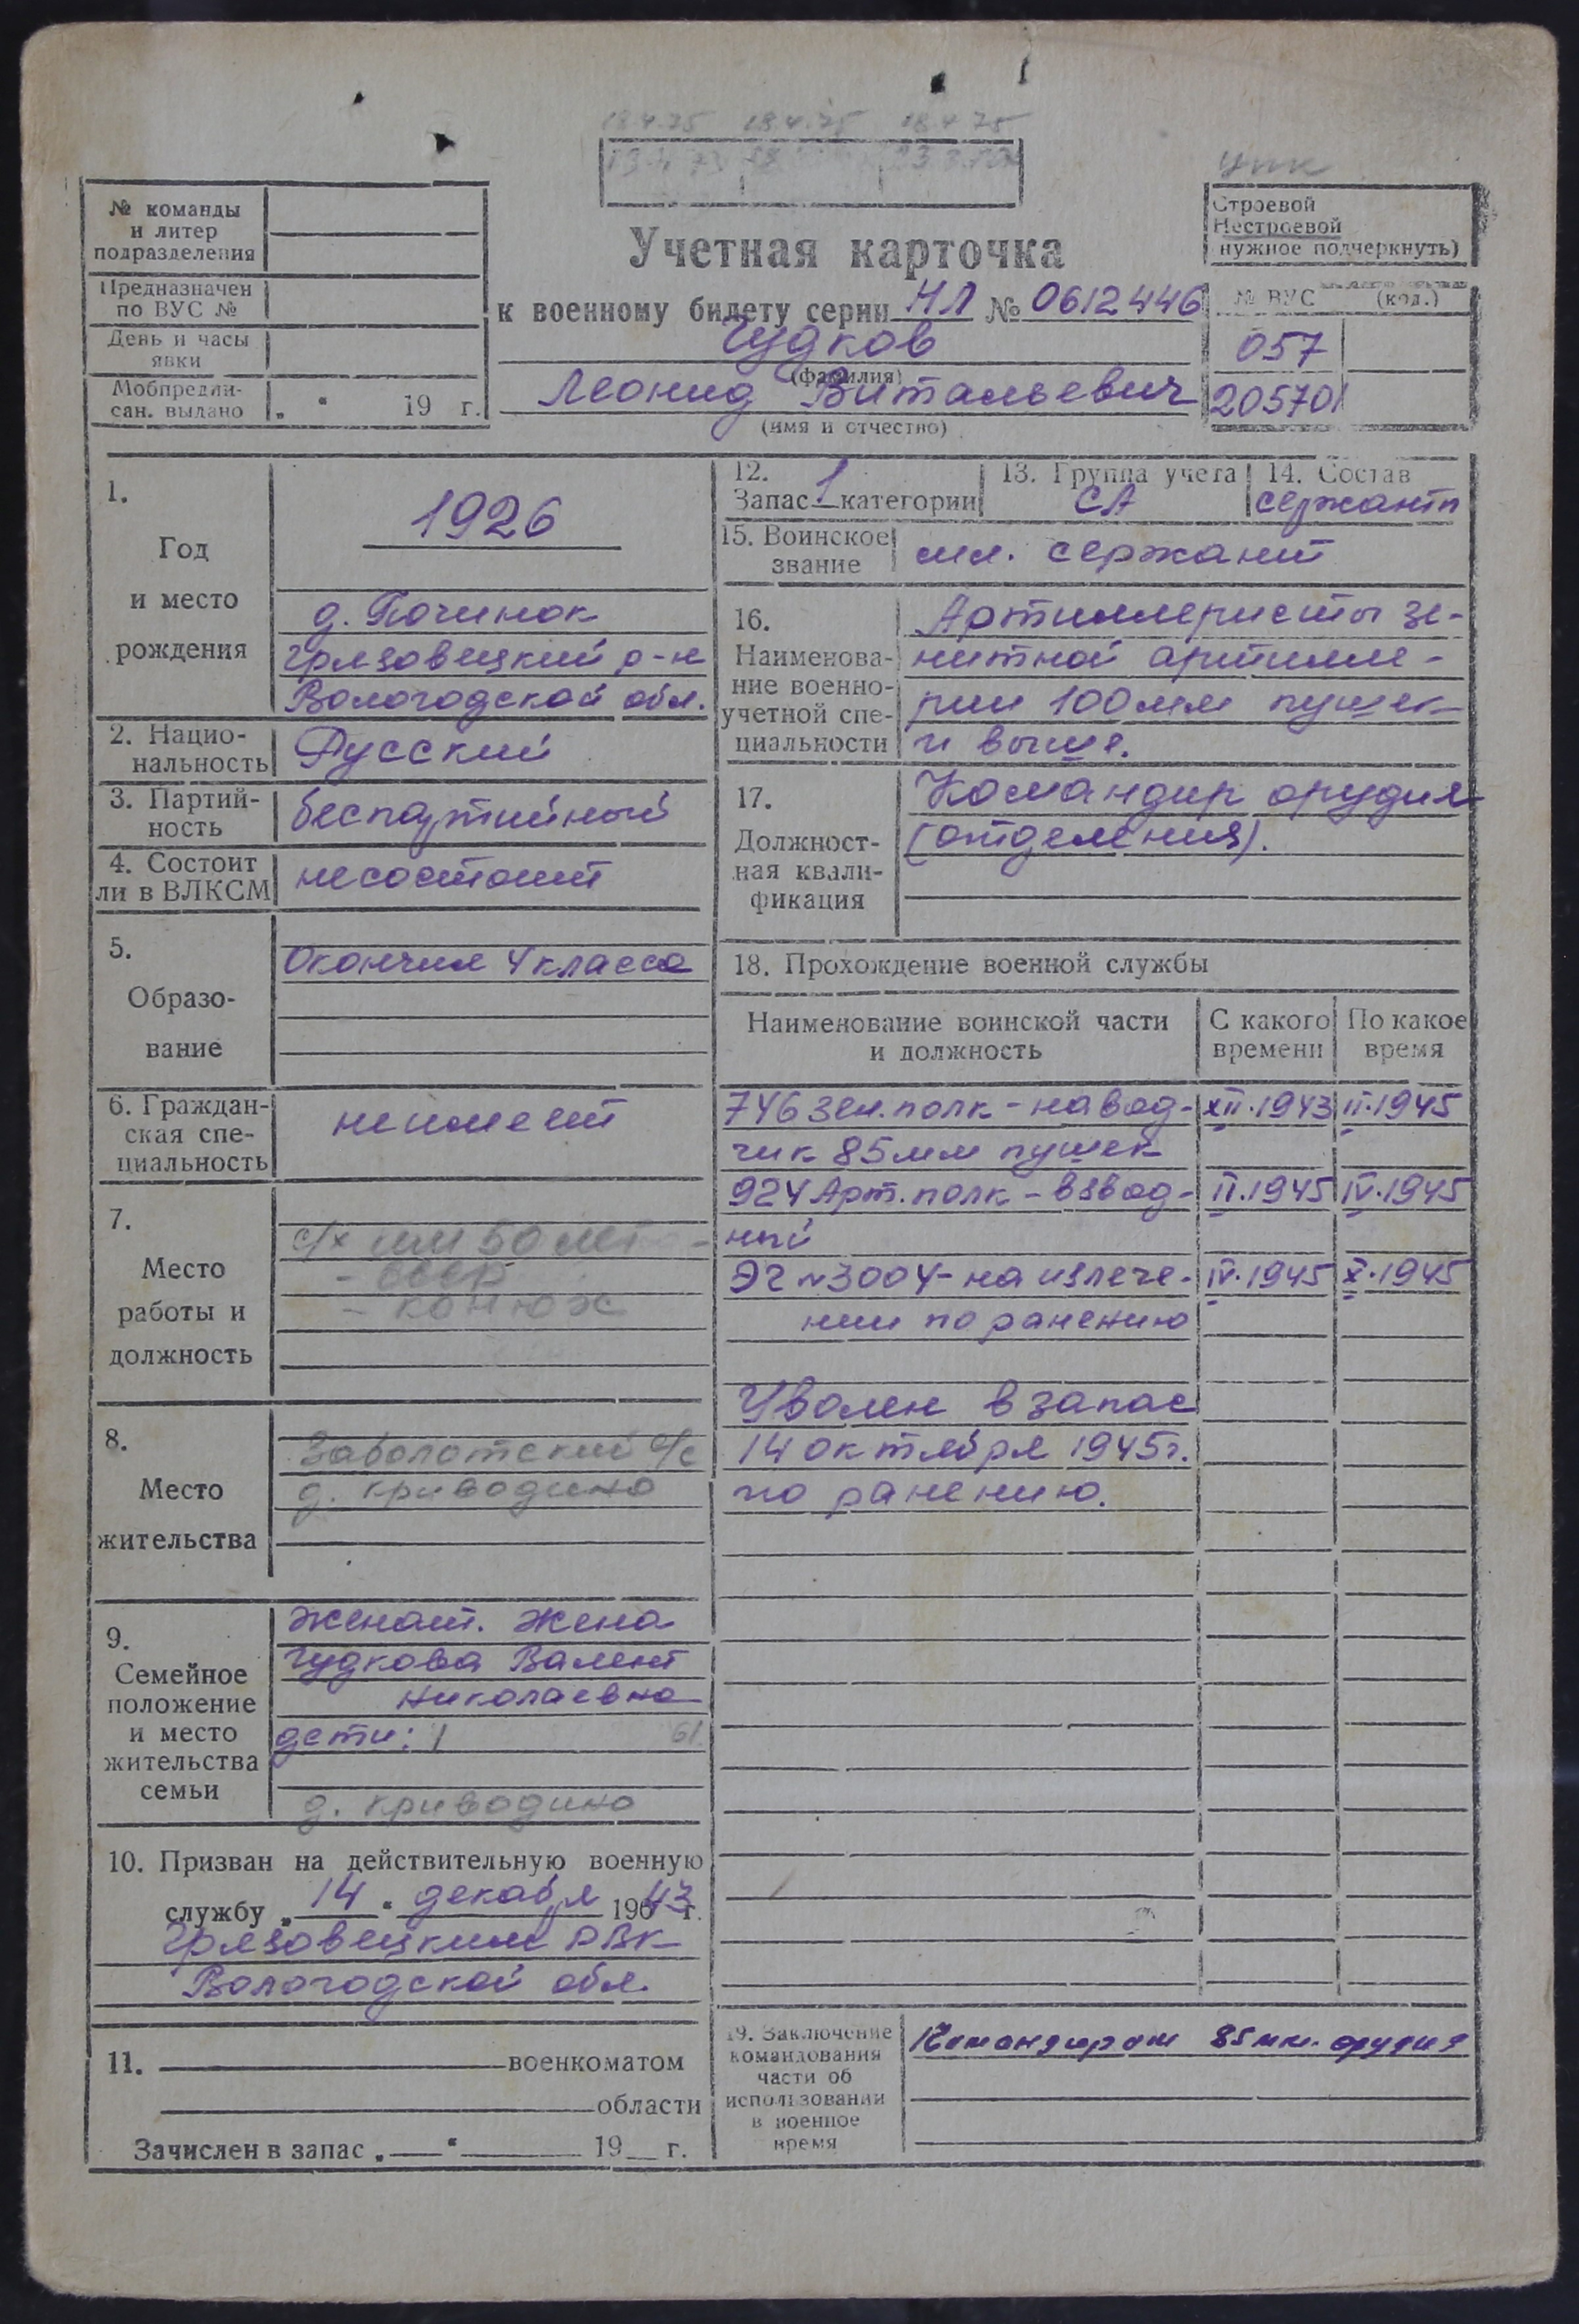 18.4.75 18.4.75 18.4.75
упк
№ команды
и литер
подразделения
Предназначен
по ВУС №
День и часы
явки
Мобпредпи-
сан. выдано „ “ 19 г.
Учетная карточка
к военному билету серии НЛ № 0612446
Чудков
(фамилия)
Леонид Витальевич
(имя и отчество)
Строевой
Нестроевой
нужное подчеркнуть)
№ ВУС (код.)
057
20570
1.
Год
и место
рождения
1926
д. Починок
Грязовецкий р-н
Вологодской обл.
2. Нацио-
нальность
Русский
3. Партий-
ность
беспартийный
4. Состоит
ли в ВЛКСМ
несостоит
5.
Образо-
вание
Окончил 4 класса
6. Граждан-
ская спе-
циальность
неимеет
7.
Место
работы и
должность
с/х им 50 лет -
- СССР
- конюх
8.
Место
жительства
Заболотский с/с
д. Криводино
9.
Семейное
положение
и место
жительства
семьи
женат. Жена
Чудкова Валент
Николаевна
дети: 1 61
д. Криводино
10. Призван на действительную военную
службу „ 14 “ декабря 1943 г.
Грязовецким РВК
Вологодской обл.
11. военкоматом
области
Зачислен в запас „ “ 19 г.
12.
Запас 1 категории
13. Группа учета
СА
14. Состав
сержант
15. Воинское
звание
мл. сержант
16.
Наименова-
ние военно-
учетной спе-
циальности
Артиллеристы зе-
нитной артилле-
рии 100мм пушек
и выше.
17.
Должност-
ная квали-
фикация
Командир орудия
(отделения).
18. Прохождение военной службы
Наименование воинской части
и должность
С какого
времени
По какое
время
746 зен. полк - навод- XII.1943 II.1945
чик 85мм пушек
924 Арт. полк - взвод- II.1945 IV.1945
ный
ЭГ №3004 - на излече- IV.1945 X.1945
нии по ранению
Уволен в запас
14 октября 1945г.
по ранению.
19. Заключение
командования
части об
использовании
в военное
время
Командиром 85мм. орудия